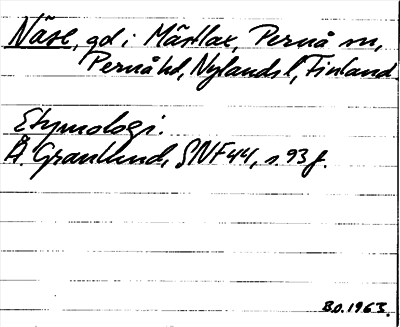 Näse, gd i Mårtlax, Pernå sn,
Pernå hd, Nylands l, Finland
Etymologi.
Å. Granlund, SNF 44, s. 93 f.
B.O. 1963.